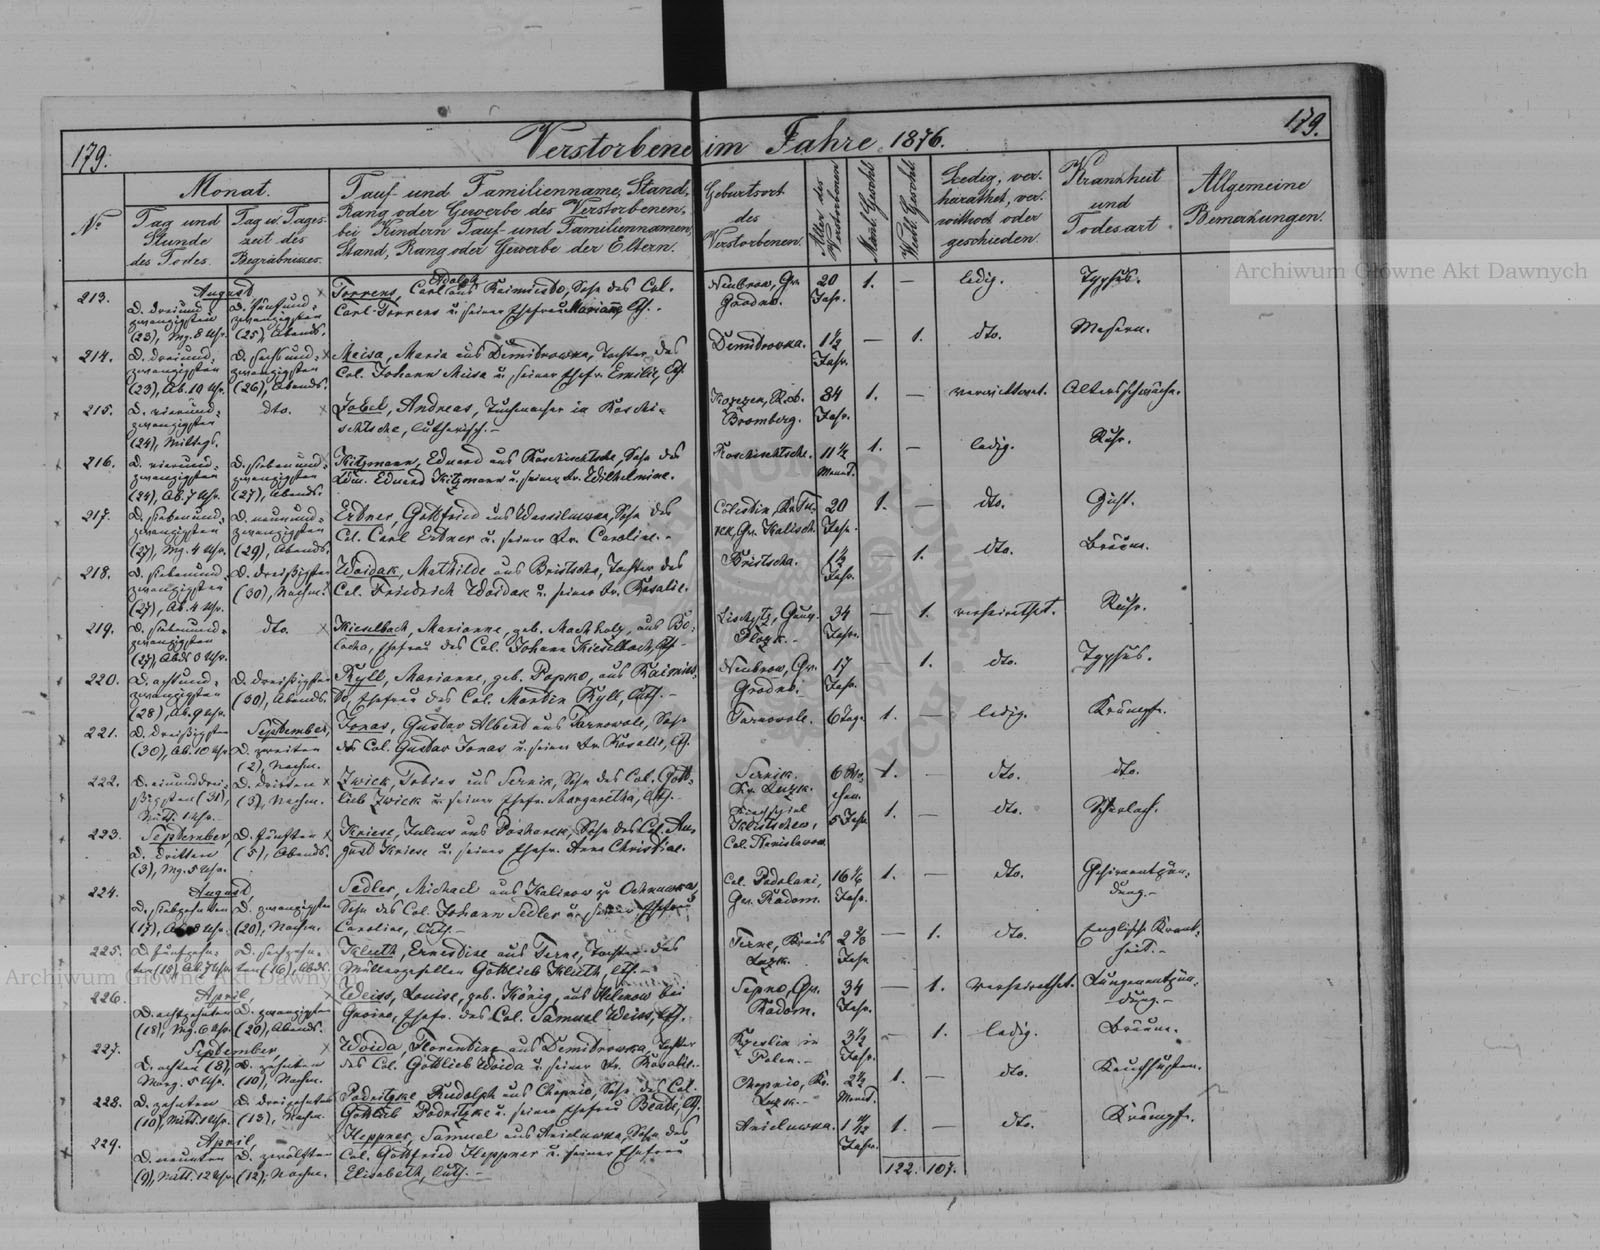 179.
Verstorbene im Jahre 1876.
179.
No
Monat.
Tag und
Stunde
des Todes.
Tag u. Tages-
zeit des
Begräbnisses.
Tauf- und Familienname, Stand,
Rang oder Gewerbe des Verstorbenen,
bei Kindern Tauf- und Familiennamen,
Stand, Rang oder Gewerbe der Eltern.
Geburtsort
des
Verstorbenen.
Alter des
Verstorbenen
Männl. Geschl.
Weibl. Geschl.
Ledig, ver-
heirathet, ver-
wittwet oder
geschieden.
Krankheit
und
Todesart.
Allgemeine
Bemerkungen.
213.
August
D. dreiund-
zwanzigsten
(23), Mg. 8 Uhr.
D. fünfund-
zwanzigsten
(25), Abends.
Adolph
Torrens, Carl aus Kaimiesto, Sohn des Col.
Carl Torrens u. seiner Ehefrau Mariann, luth.
Neubrow, Gv.
Grodno.
20
Jahr.
1.
—
ledig.
Typhus.
214.
D. dreiund-
zwanzigsten
(23), Ab. 10 Uhr.
D. sechsund-
zwanzigsten
(26), Abends.
Meisa, Maria aus Demidrowka, Tochter des
Col. Johann Meisa u. seiner Ehefr. Emilie, luth.
Demidrowka.
1½
Jahr.
—
1.
dto.
Masern.
215.
D. vierund-
zwanzigsten
(24), Mittags.
dto.
Andreas, Tuchmacher in Koschi-
schtsche, lutherisch.
Bromberg.
84
Jahr.
1.
—
verwittwet.
Altersschwäche.
216.
D. vierund-
zwanzigsten
(24), Ab. 7 Uhr.
D. siebenund-
zwanzigsten
(27), Abends.
Kitzmann, Eduard aus Roschischtsche, Sohn des
Eduard Kitzmann u. seiner Fr. Wilhelmine.
Roschischtsche.
11½
Monat.
1.
—
ledig.
Ruhr.
217.
D. siebenund-
zwanzigsten
(27), Mg. 4 Uhr.
D. neunund-
zwanzigsten
(29), Abends.
Erdner, Gottfried aus Wassiluwka, Sohn des
Col. Carl Erdner u. seiner Fr. Caroline.
Gv. Kalisch.
20
Jahr.
1.
—
dto.
Gicht.
218.
D. siebenund-
zwanzigsten
(27), Ab. 4 Uhr.
D. dreißigsten
(30), Nachm.
Woidak, Mathilde aus Bristscha, Tochter des
Col. Friedrich Woidak u. seiner Fr. Rosalie.
Bristscha.
1½
Jahr.
—
1.
dto.
Bräune.
219.
D. siebenund-
zwanzigsten
(27), Abds 3 Uhr.
dto.
Kieselbach, Marianne, geb. Machholz, aus Bo-
Ehefrau des Col. Johann Kieselbach, luth.
Plozk.
34
Jahr.
—
1.
verheirathet.
Ruhr.
220.
D. achtund-
zwanzigsten
(28), Ab. 9 Uhr.
D. dreißigsten
(30), Abends.
Ryll, Marianne, geb. Popko, aus Kaimies-
to, Ehefrau des Col. Martin Ryll, luth.
Neubrow, Gv.
Grodno.
17
Jahr.
—
1.
dto.
Typhus.
221.
D. dreißigsten
(30), Ab. 10 Uhr.
September,
D. zweiten
(2), Nachm.
Jonas, Gustav Albert aus Tarnowole, Sohn
des Col. Gustav Jonas u. seiner Fr. Rosalie, luth.
Tarnowole.
6 Tage.
1.
—
ledig.
Krämpfe.
222.
D. einunddrei-
ßigsten (31),
Mitt. 1 Uhr.
D. dritten
(3), Nachm.
Zwick, Tobias aus Sernik, Sohn des Col. Gott-
lieb Zwick u. seiner Ehefr. Margaretha, luth.
Sernik,
Kr. Luzk.
6 Wo-
chen.
1.
—
dto.
dto.
223.
September,
D. dritten
(3), Mg. 5 Uhr.
D. fünften
(5), Abends.
Kriese, Julius aus Poscharek, Sohn des Col. Au-
gust Kriese u. seiner Ehefr. Anna Christine.
Kirchspiel
Klitschew,
Col. Stanislawow.
5 Jahr.
1.
—
dto.
Scharlach.
224.
August
D. siebzehnten
(17), Ab. 8 Uhr.
D. zwanzigsten
(20), Nachm.
Sedler, Michael aus Kalinow zu Ochnuwka,
Sohn des Col. Johann Sedler u. seiner Ehefrau
Caroline, luth.
Col. Podolani,
Gv. Radom.
16½
Jahr.
1.
—
dto.
Gehirnentzün-
dung.
225.
D. fünfzehn-
ten (15), Ab. 7 Uhr.
D. sechzehn-
ten (16), Abds.
Kluth, Ernestine aus Terne, Tochter des
Müllergesellen Gottlieb Kluth, luth.
Terne, Kreis
Luzk.
Jahr.
—
1.
dto.
Englische Krank-
heit.
226.
April,
D. achtzehnten
(18), Mg. 6 Uhr.
D. zwanzigsten
(20), Abends.
Weiss, Louise, geb. König, aus Helenow bei
Ehefr. des Col. Samuel Weiss, luth.
Sepno, Gv.
Radom.
34
Jahr.
—
1.
verheirathet.
Lungenentzün-
dung.
227.
September,
D. achten (8),
Morg. 5 Uhr.
D. zehnten
(10), Nachm.
Woida, Florentine aus Demidrowka, Tochter
des Col. Gottlieb Woida u. seiner Fr. Rosalie.
in
Polen.
3½
Jahr.
1.
ledig.
Bräune.
228.
D. zehnten
(10), Mitt. 1 Uhr.
D. dreizehnten
(13), Nachm.
Podritzke, Rudolph aus Chopnio, Sohn des Col.
Gottlieb Podritzke u. seiner Ehefrau Beate, luth.
Chopnio, Kr.
Luzk.
2½
Monat.
1.
—
dto.
Keuchhusten.
229.
April,
D. neunten
(9), Mitt. 12 Uhr.
D. zwölften
(12), Nachm.
Heppner, Samuel aus Aneluwka, Sohn des
Col. Gottfried Heppner u. seiner Ehefrau
Elisabeth, luth.
Aneluwka.
Jahr.
1.
—
dto.
Krämpfe.
122. 107.
Archiwum Główne Akt Dawnych
Archiwum Główne Akt Dawnych